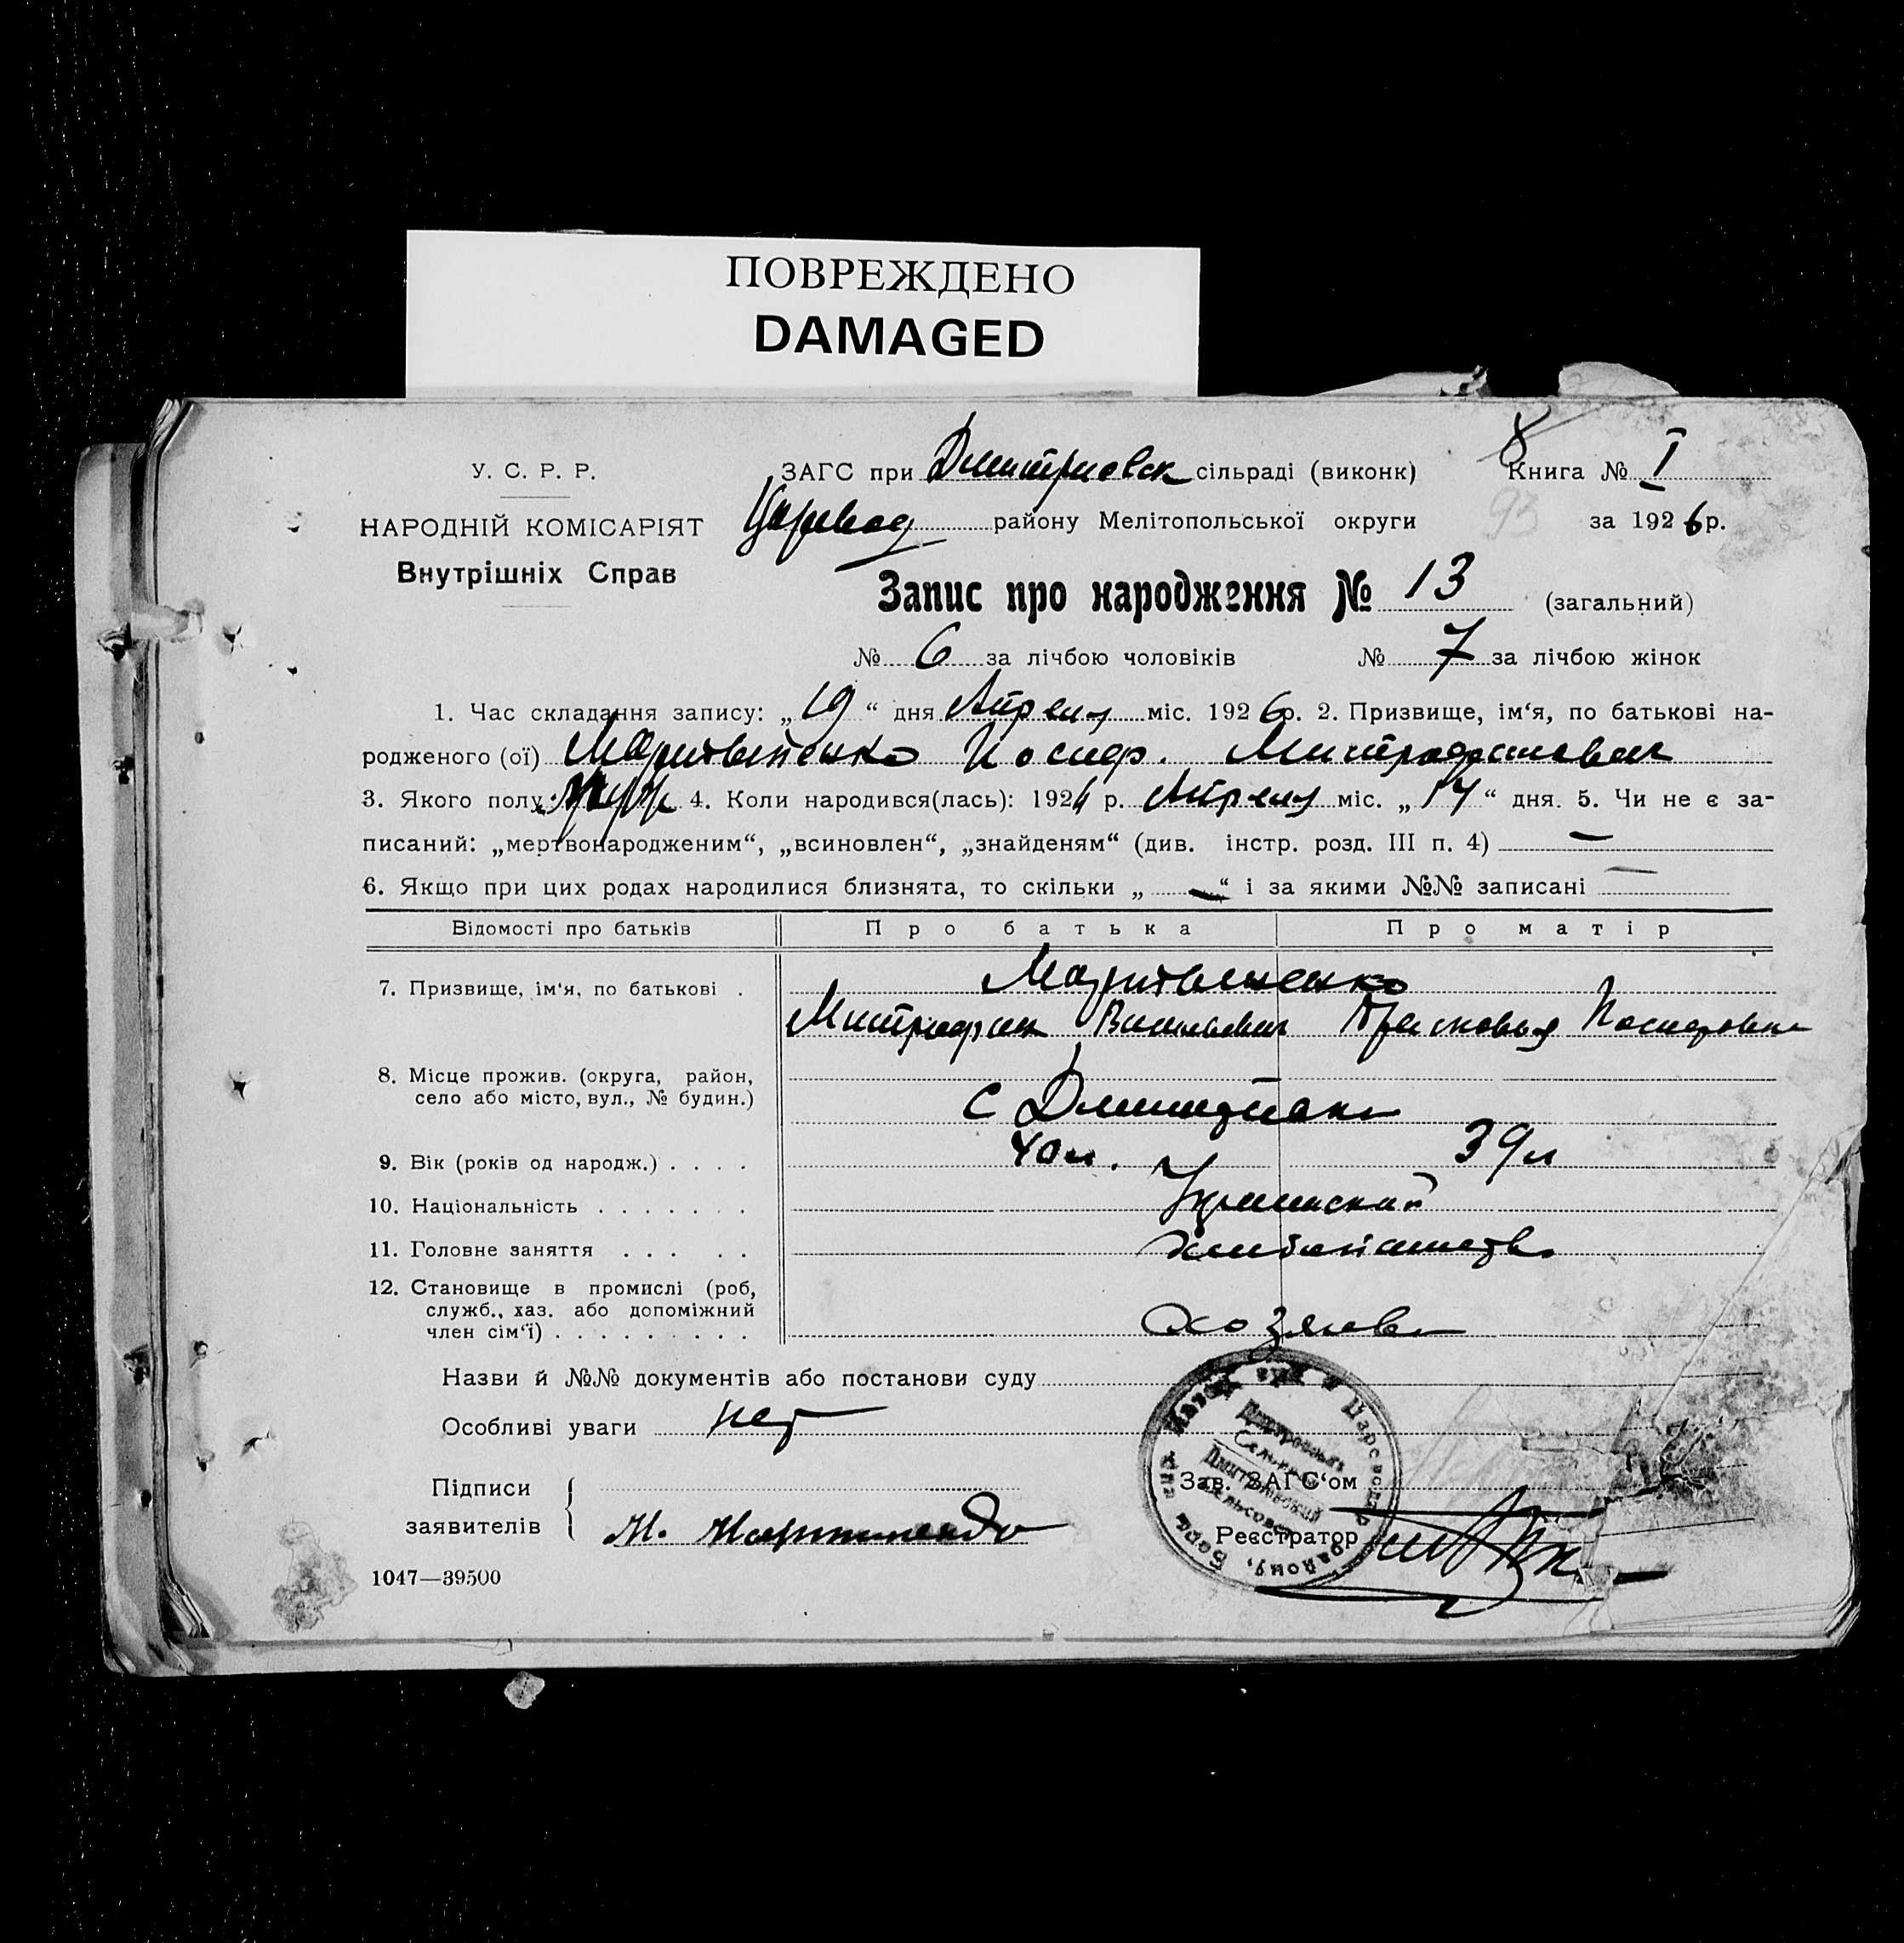 ПОВРЕЖДЕНО
DAMAGED
У. С. Р. Р.
НАРОДНІЙ КОМІСАРІЯТ
Внутрішніх Справ
ЗАГС при Дмитриевск сільраді (виконк)
Царевод району Мелітопольської округи
Книга № I
93
за 1926 р.
Запис про народження № 13 (загальний)
№ 6 за лічбою чоловіків № 7 за лічбою жінок
1. Час складання запису: „19“ дня Апреля міс. 1926 р. 2. Призвище, ім‘я, по батькові на-
родженого (ої) Иосиф. Митрофанович
3. Якого полу 4. Коли народився(лась): 192 р. Апреля міс. „17“ дня. 5. Чи не є за-
писаний: „мертвонародженим“, „всиновлен“, „знайденям“ (див. інстр. розд. III п. 4) —
6. Якщо при цих родах народилися близнята, то скільки „—“ і за якими №№ записані —
Відомості про батьків Про батька Про матір
7. Призвище, ім‘я, по батькові .
Митрофан Васильевич Прасковья Иосифовна
8. Місце прожив. (округа, район,
село або місто, вул., № будин.)
с Дмитриевка
9. Вік (років од народж.) . . . . 40 л. 39 л
10. Національність . . . . . . . Украинский
11. Головне заняття . . . . .
12. Становище в промислі (роб,
служб., хаз. або допоміжний
член сім‘ї) . . . . . . . . . Хозяева
Назви й №№ документів або постанови суду
Особливі уваги нет
Підписи
заявителів
Зав. ЗАГС‘ом
Реєстратор
1047—39500